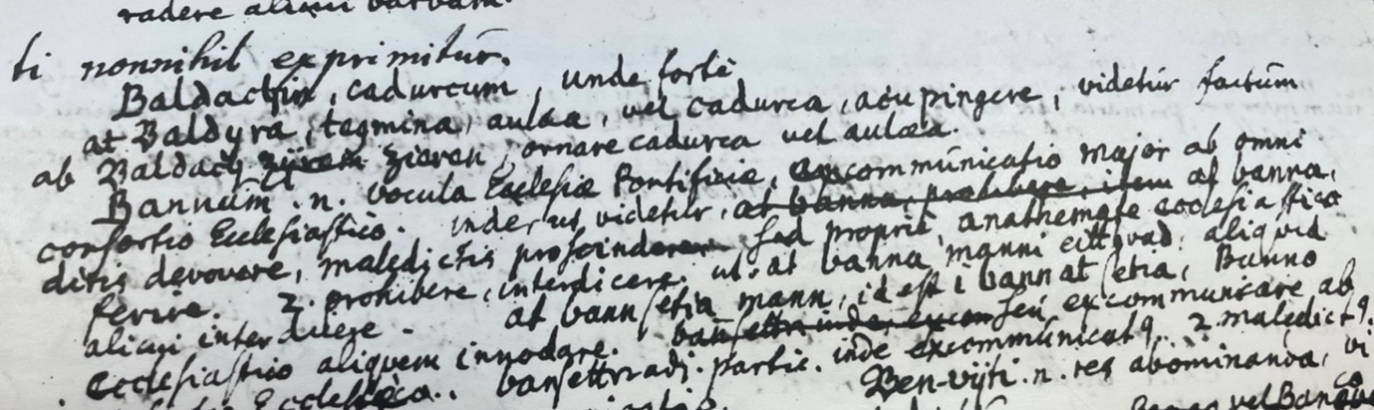 radere alicui barbam.
ti nonnihil exprimitur.
Baldachin, cadurcum, unde fortè
at Baldyra, tegmina, aulæa, vel cadurca, acu pingere; videtur factum
ab Baldach ziæren, ornare cadurca vel aulæa.
Bannum. n. vocula Ecclesiæ Pontificiæ, excommunicatio major ab omni
consortio Ecclesiastico. inde, ut videtur, at banna, prohibere, item at banna,
diris devovere, maledictis proscindere. sed propriè anathemate ecclesiastico
ferire. 2. prohibere, interdicere. ut. at banna manni eitthvad. aliquid
alicui interdicere. at bannsetia mann, id est i bann at setia, Banno
Ecclesiastico aliquem innodare. seu excommunicare ab
bansettr adi. partic. inde excommunicat9. 2. maledict9.
Ben-vijti. n. res abominanda, vi
vel Bang